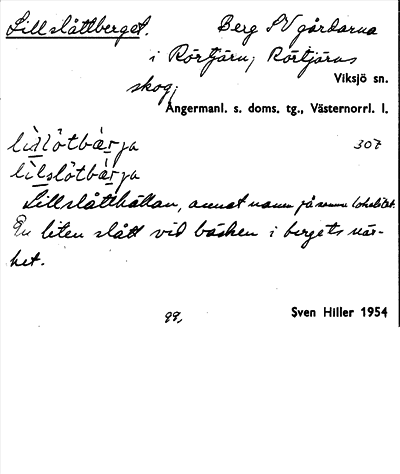 Lillslåttberget. Berg SV gårdarna
i Rörtjärn, Rörtjärns
skog,
Viksjö sn.
Ångermanl. s. doms. tg., Västernorrl. l.
307
Lillslåtthällan, annat namn på samma lokalitet.
En liten slått vid bäcken i bergets när-
het.
99,
Sven Hiller 1954